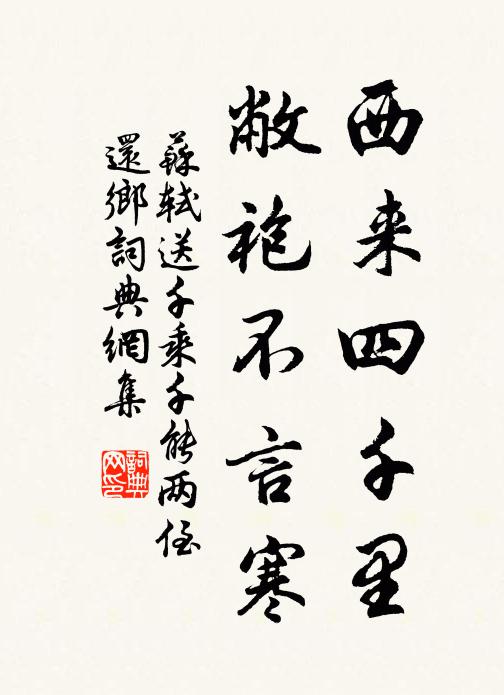 西来四千里
敝袍不言寒
蘇軾送千乘千能两侄
還鄉詞典網集
詞典网印